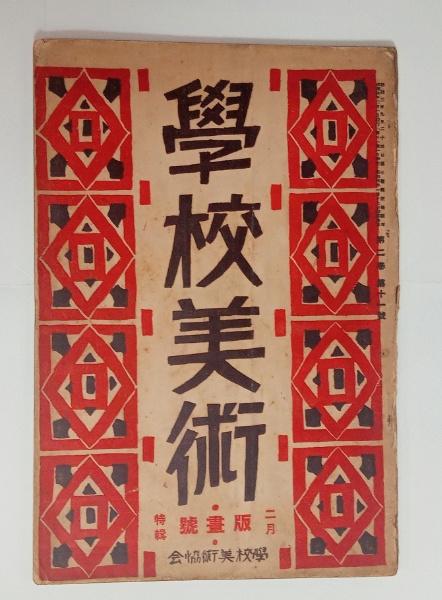 學校美術
二月
版畫號
特輯
會協術美校學
第二卷 第十一號